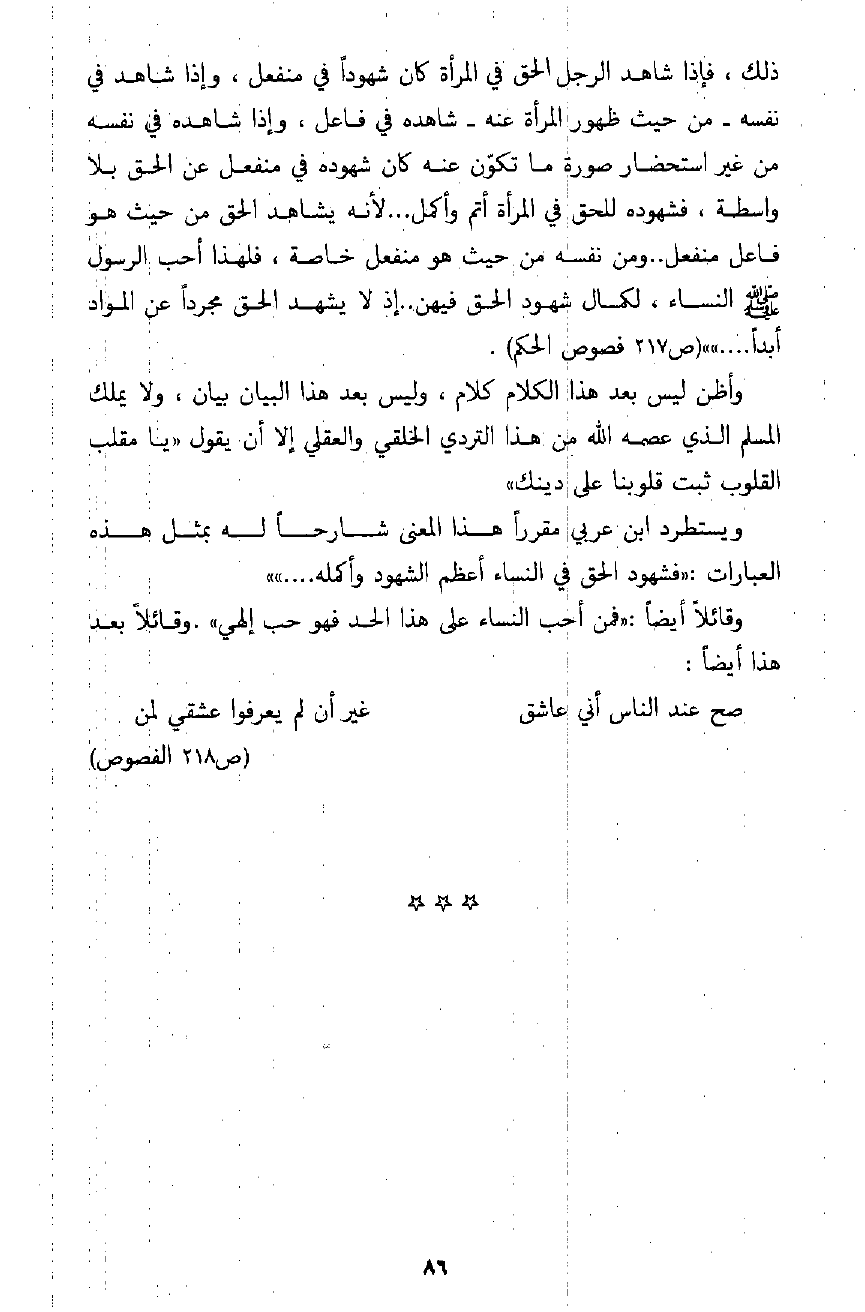 ذلك ، فإذا شاهد الرجل الحق في المرأة كان شهوداً في منفعل ، وإذا شاهد في
نفسه ـ من حيث ظهور المرأة عنه ـ شاهده في فاعل ، وإذا شاهده في نفسه
من غير استحضار صورة ما تكوّن عنه كان شهوده في منفعل عن الحق بلا
واسطة ، فشهوده للحق في المرأة أتم وأكمل...لأنه يشاهد الحق من حيث هو
فاعل منفعل..ومن نفسه من حيث هو منفعل خاصة ، فلهذا أحب الرسول
ﷺ النساء ، لكمال شهود الحق فيهن..إذ لا يشهد الحق مجرداً عن المواد
أبداً....»»(ص٢١٧ فصوص الحكم) .
وأظن ليس بعد هذا الكلام كلام ، وليس بعد هذا البيان بيان ، ولا يملك
المسلم الذي عصمه الله من هذا التردي الخلقي والعقلي إلا أن يقول «يا مقلب
القلوب ثبت قلوبنا على دينك»
ويستطرد ابن عربي مقرراً هذا المعنى شارحاً له بمثل هذه
العبارات :«فشهود الحق في النساء أعظم الشهود وأكمله....»»
وقائلاً أيضاً :«فمن أحب النساء على هذا الحد فهو حب إلهي» .وقائلاً بعد
هذا أيضاً :
صح عند الناس أني عاشق غير أن لم يعرفوا عشقي لمن
(ص٢١٨ الفصوص)
☆ ☆ ☆
٨٦